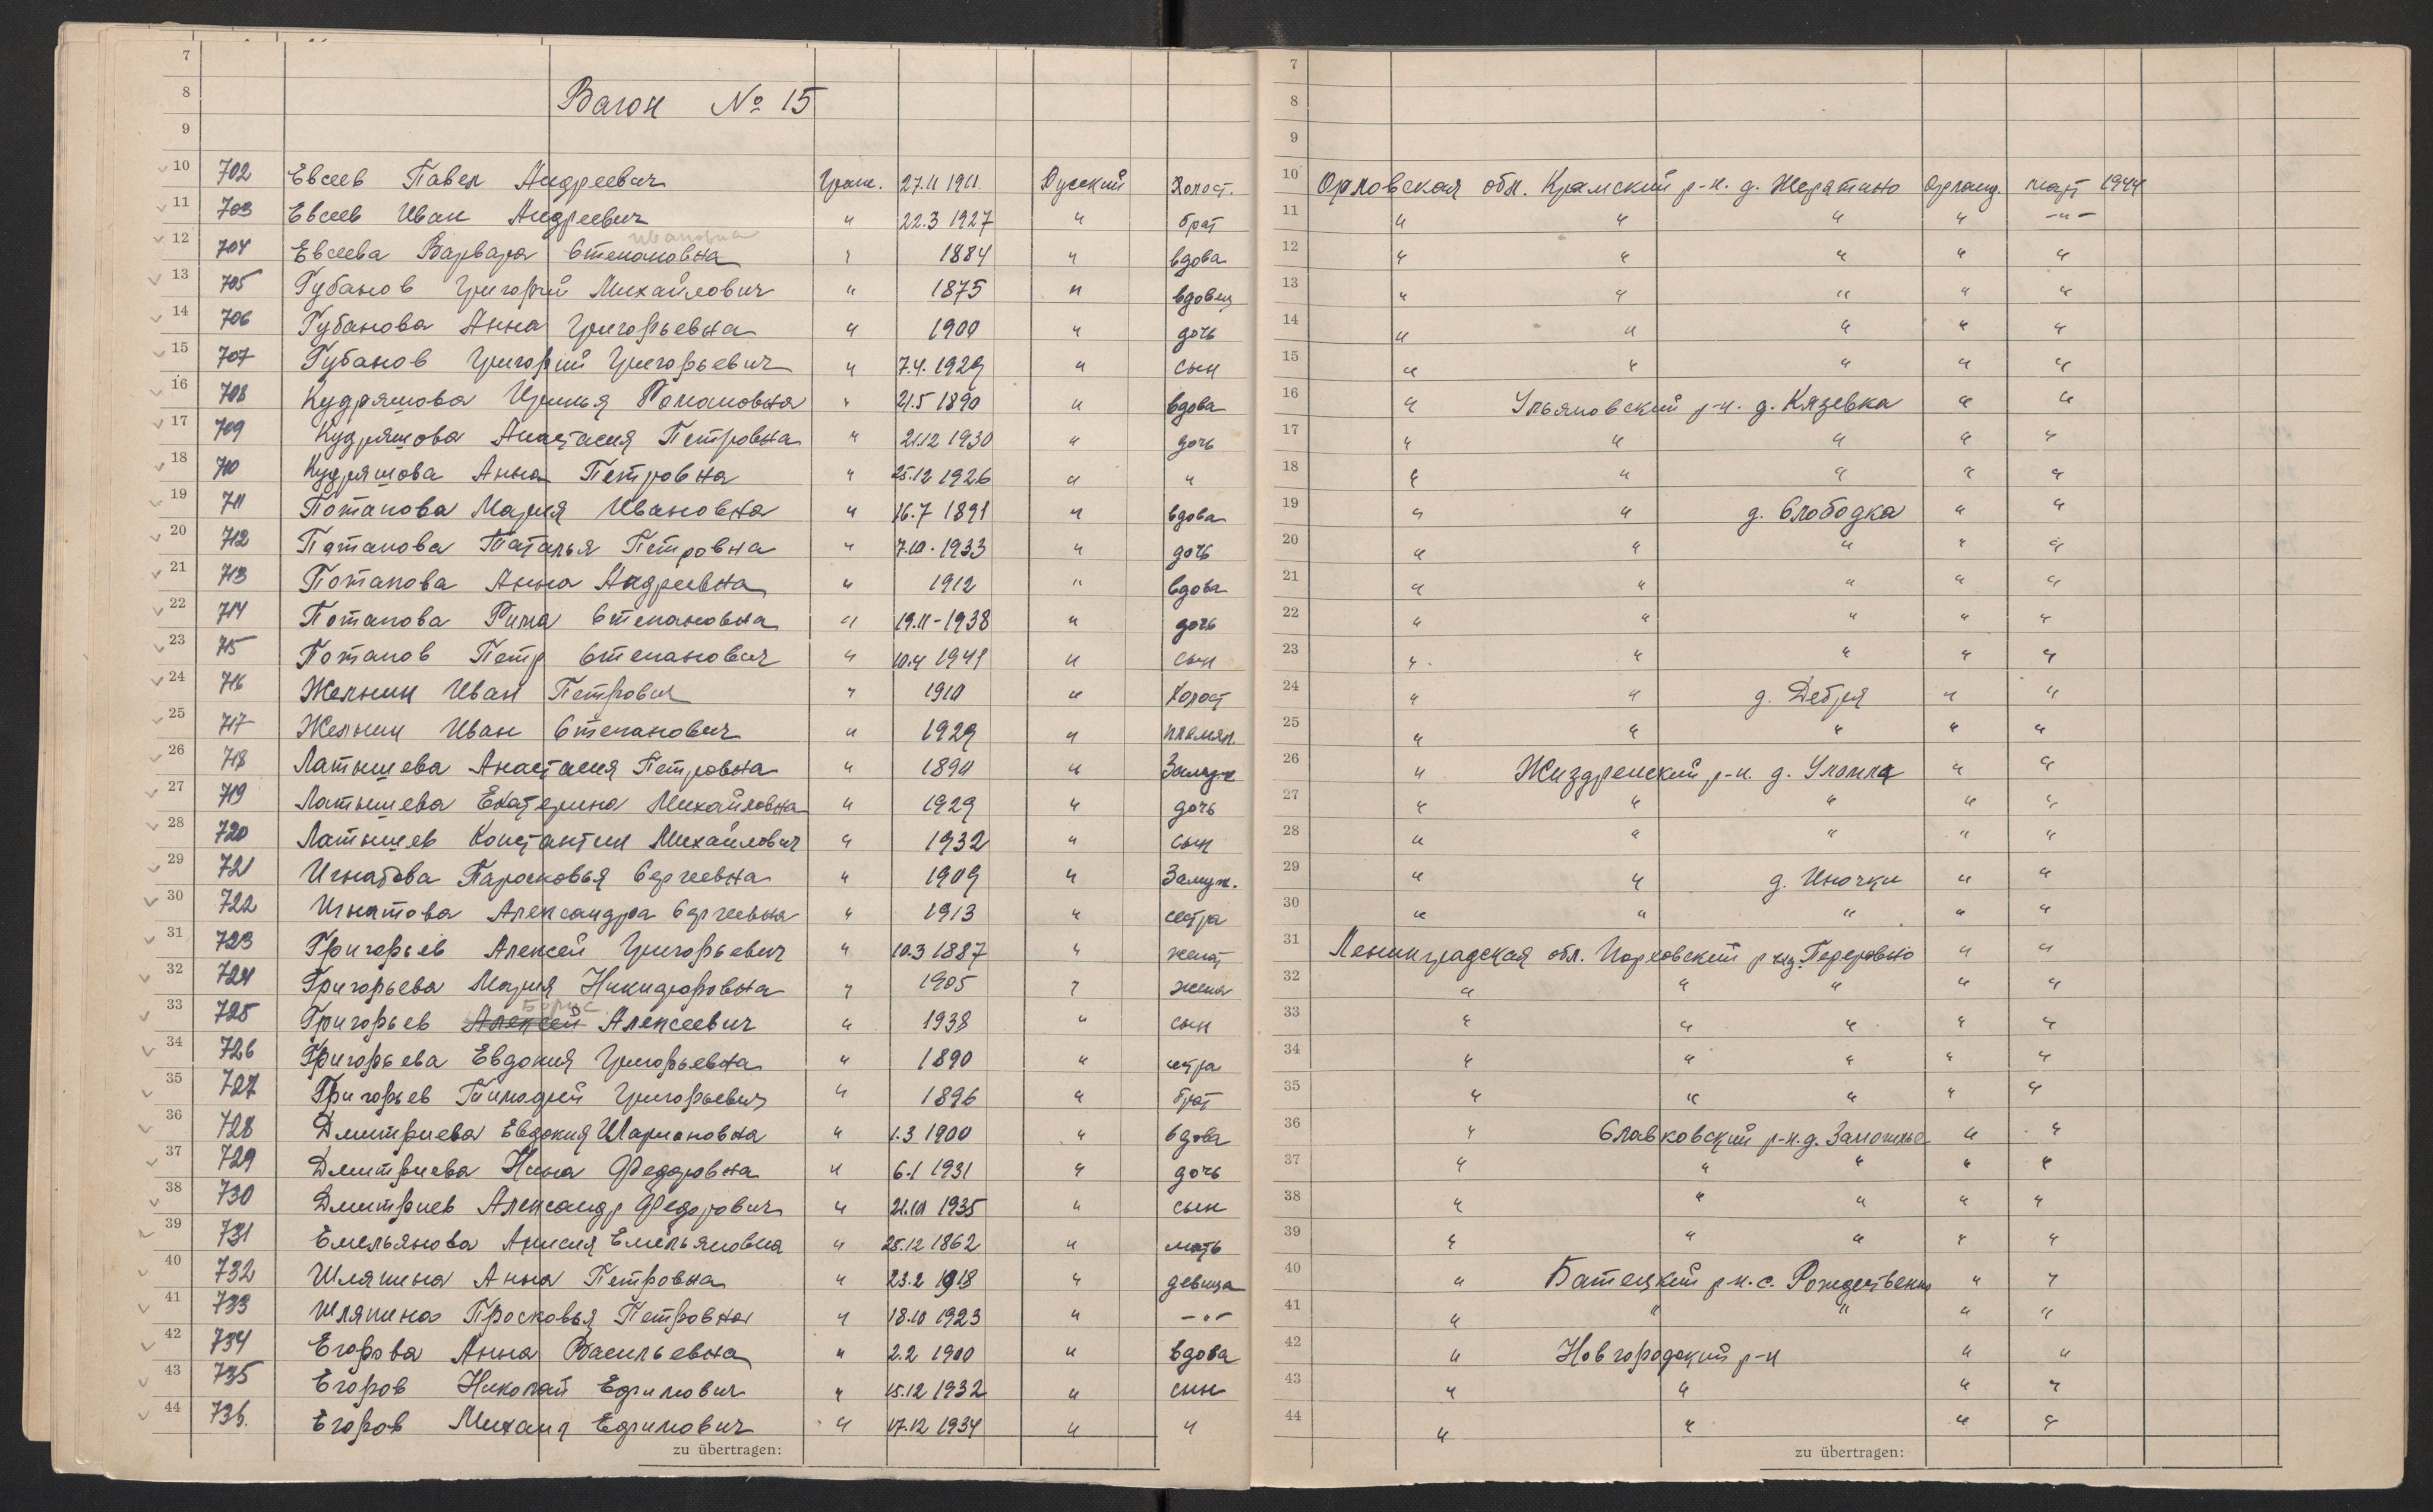 7 7
8 Вагон № 15 8
9 9
10 702 Евсеев Павел Андреевич Граж. 27.11 1911 Русский Холост. 10 Орловская обл. Крамский р-н. д. Жерятино март 1944
11 703 Евсеев Иван Андреевич " 22.3 1927 " брат 11 " " " " -"-
ивановна
12 704 Евсеева Варвара Степановна " 1884 " вдова 12 " " " " "
13 705 Губанов Григорий Михайлович " 1875 " вдовец 13 " " " " "
14 706 Губанова Анна Григорьевна " 1900 " дочь 14 " " " " "
15 707 Губанов Григорий Григорьевич " 7.4. 1929 " сын 15 " " " " "
16 708 Кудряшова Иринья Романовна " 21.5 1890 " вдова 16 " Ульяновский р-н. д. Кязевка " "
17 709 Кудряшова Анастасия Петровна " 21.12 1930 " дочь 17 " " " " "
18 710 Кудряшова Анна Петровна " 25.12 1926 " " 18 " " " " "
19 711 Потапова Мария Ивановна " 16.7 1891 " вдова 19 " " д. Слободка " "
20 712 Потапова Наталья Петровна " 7.10. 1933 " дочь 20 " " " " "
21 713 Потапова Анна Андреевна " 1912 " вдова 21 " " " " "
22 714 Потапова Рима Степановна " 19.11-1938 " дочь 22 " " " " "
23 715 Потапов Петр Степанович " 10.4 1941 " сын 23 " " " " "
24 716 Желнин Иван Петрович " 1910 " Холост 24 " " д. Дебря " "
25 717 Желнин Иван Степанович " 1929 " племян. 25 " " " " "
26 718 Латышева Анастасия Петровна " 1890 " Замуж 26 " Жиздренский р-н. д. Улемла " "
27 719 Латышева Екатерина Михайловна " 1929 " дочь 27 " " " " "
28 720 Латышев Константин Михайлович " 1932 " сын 28 " " " " "
29 721 Игнатова Парасковья Сергеевна " 1909 " Замуж. 29 " " д. Иночки " "
30 722 Игнатова Александра Сергеевна " 1913 " сестра 30 " " " " "
31 723 Григорьев Алексей Григорьевич " 10.3 1887 " женат 31 Ленинградская обл. Порховский " "
32 724 Григорьева Мария Никифоровна " 1905 " жена 32 " " " " "
Борис
33 725 Григорьев Алексей Алексеевич " 1938 " сын 33 " " " " "
34 726 Григорьева Евдокия Григорьевна " 1890 " сестра 34 " " " " "
35 727 Григорьев Тимофей Григорьевич " 1896 " брат 35 " " " " "
36 728 Дмитриева Евдокия Иларионовна " 1.3 1900 " вдова 36 " Славковский р-н. д. Замошье " "
37 729 Дмитриева Нина Федоровна " 6.1 1931 " дочь 37 " " " " "
38 730 Дмитриев Александр Федорович " 21.10 1935 " сын 38 " " " " "
39 731 Емельянова Анисия Емельяновна " 25.12 1862 " мать 39 " " " " "
40 732 Шляпина Анна Петровна " 23.2 1918 " девица 40 " Батецкий р-н. с. Рождествено " "
41 733 Шляпина Просковья Петровна " 18.10 1923 " -"- 41 " " " " "
42 734 Егорова Анна Васильевна " 2.2 1900 " вдова 42 " Новгородский р-н " "
43 735 Егоров Николай Ефимович " 15.12 1932 " сын 43 " " " "
44 736. Егоров Михаил Ефимович " 17.12 1934 " " 44 " " " "
zu übertragen: zu übertragen: